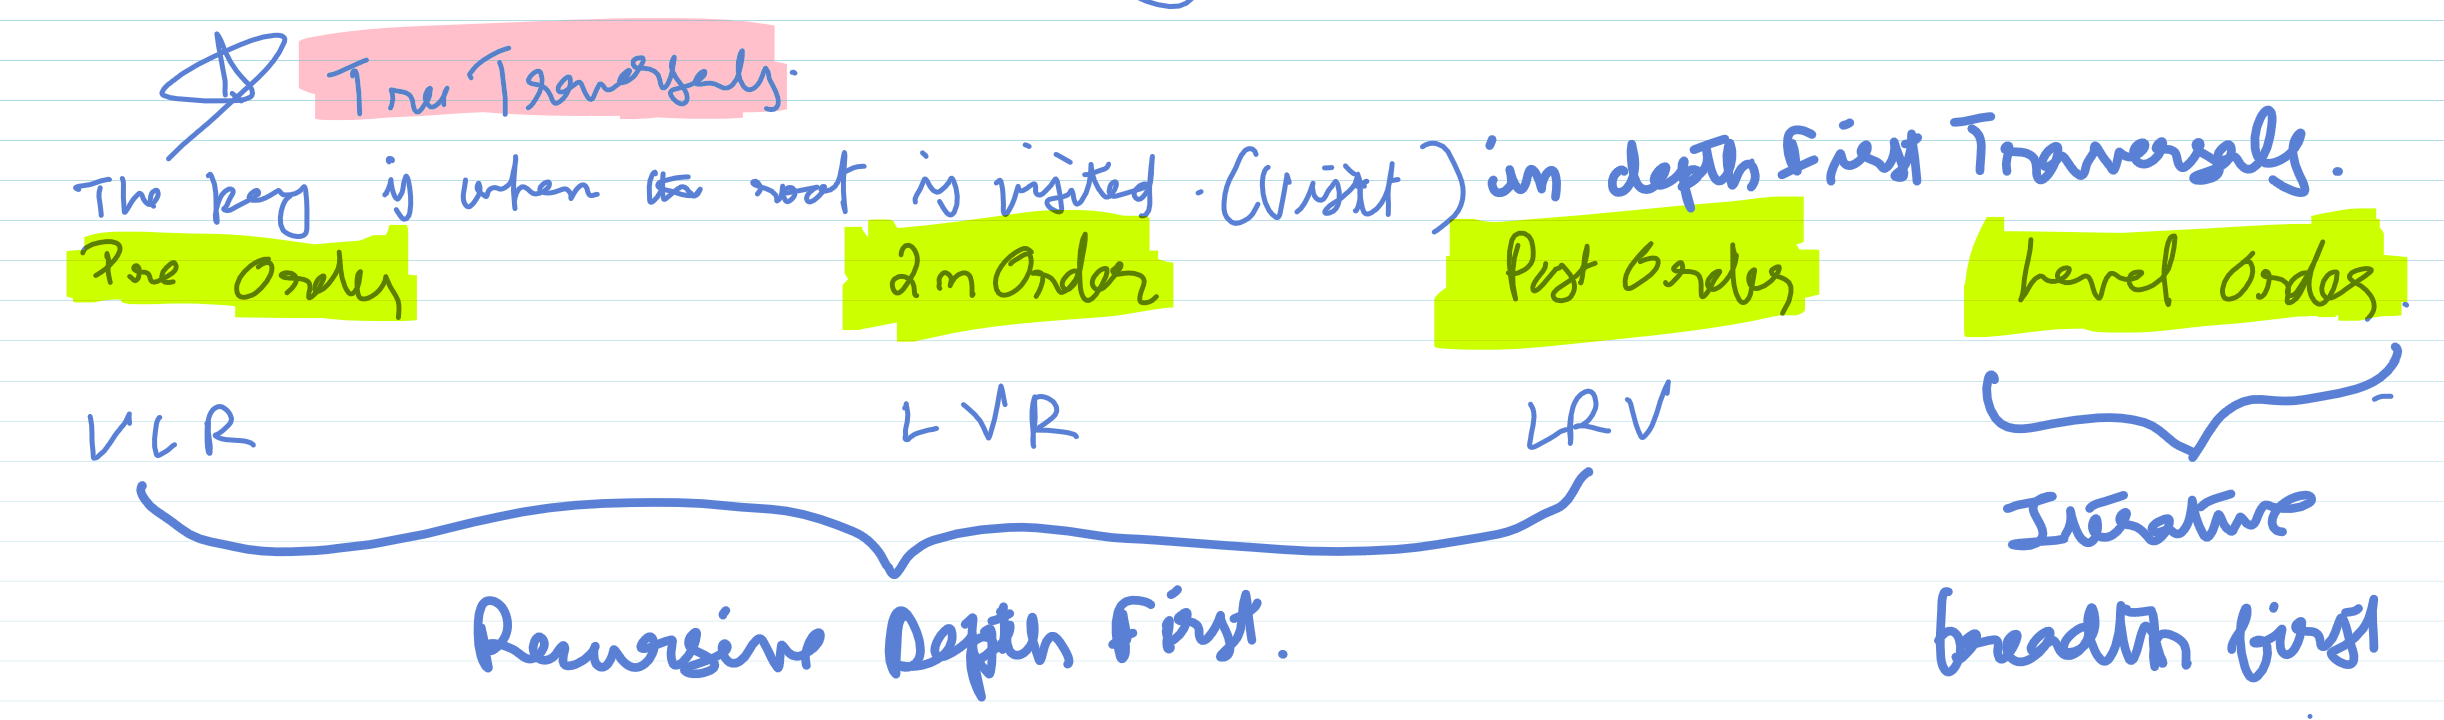 Tree Traversals.
The key is when the root is visited. (Visit) in depth First Traversals.
Pre Order In Order Post Order Level Order.
VLR LVR LRV
Iterative
Recursive Depth First. breadth first